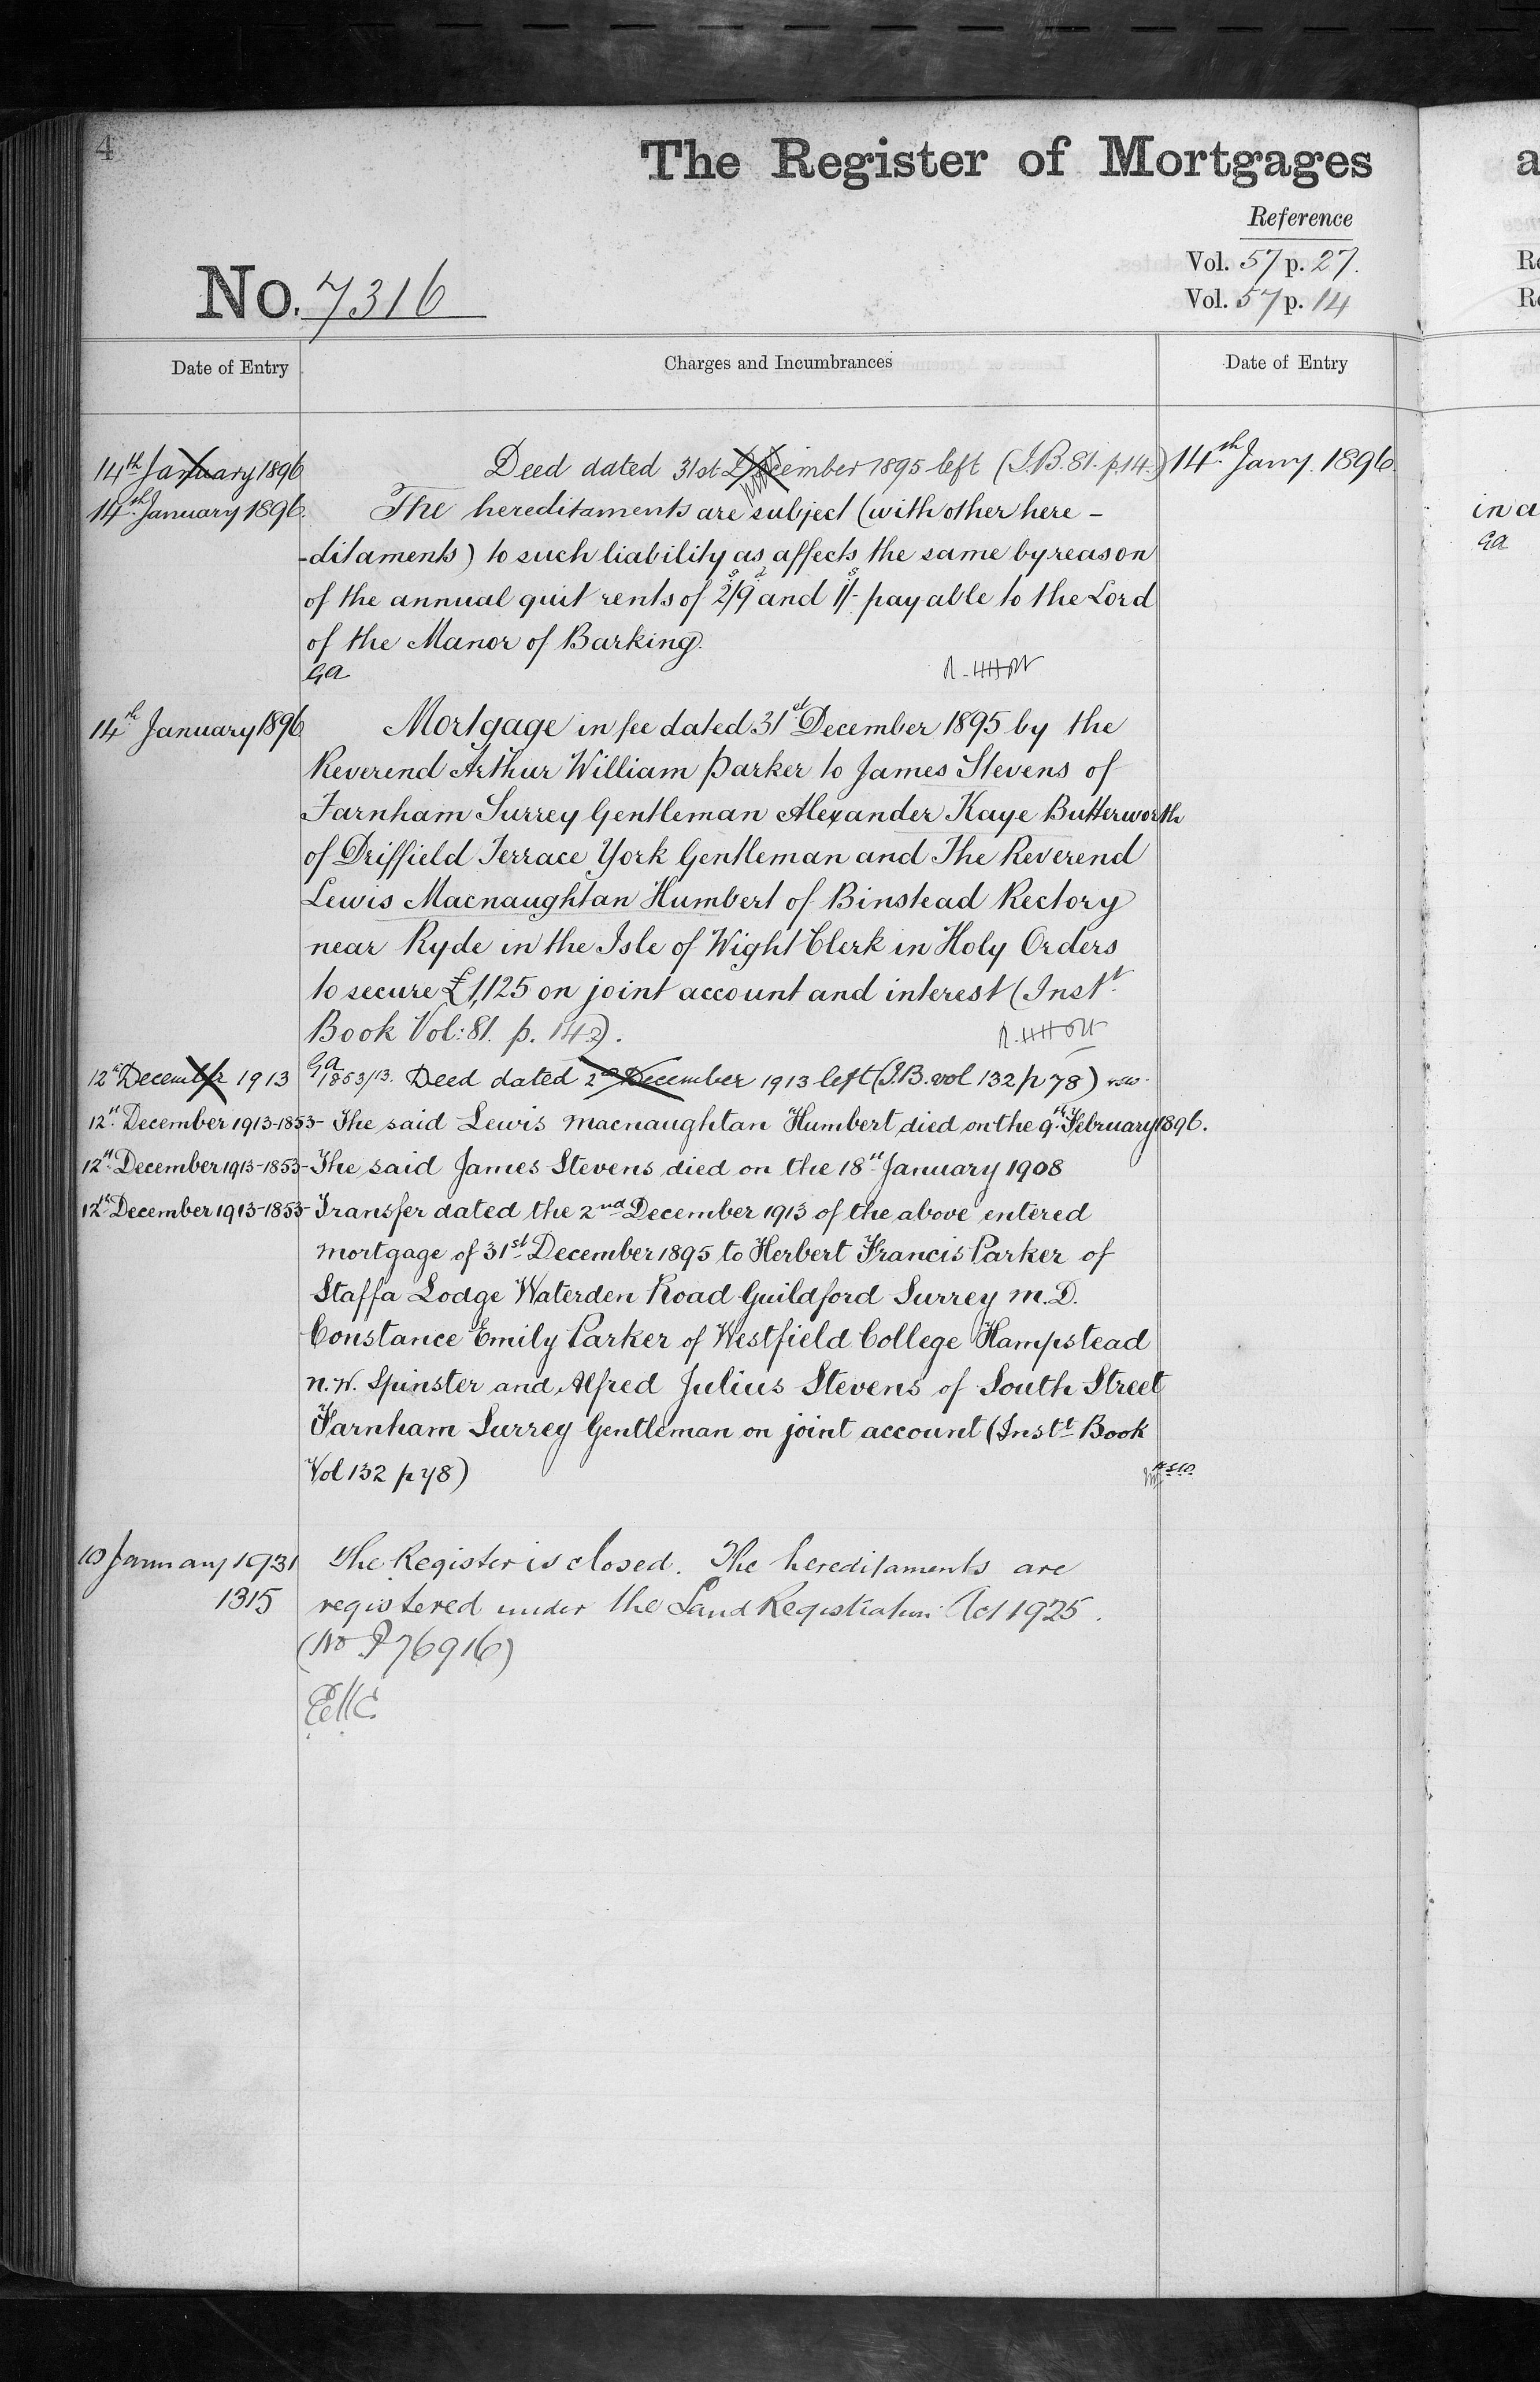 4
The Register of Mortgages
Reference
Vol. 57 p. 27.
Vol. 57 p. 14
No. 7316
Date of Entry
Charges and Incumbrances
Date of Entry
14th January 1896 Deed dated 31st December 1895 left (I.B. 81. p. 14.) 14th Jany. 1896
14th January 1896. The hereditaments are subject (with other here-
-ditaments) to such liability as affects the same by reason
of the annual quit rents of 2s/9d and 1s/- payable to the Lord
of the Manor of Barking.
GA
14th January 1896 Mortgage in fee dated 31st December 1895 by the
Reverend Arthur William Parker to James Stevens of
Farnham Surrey Gentleman Alexander Kaye Butterworth
of Driffield Terrace York Gentleman and The Reverend
Lewis Macnaughtan Humbert of Binstead Rectory
near Ryde in the Isle of Wight Clerk in Holy Orders
to secure £1,125 on joint account and interest (Instt.
Book Vol: 81. p. 14).
GA
12th December 1913 1853/13. Deed dated 2nd December 1913 left (I.B. vol 132 p 78)
12th December 1913-1853- The said Lewis Macnaughtan Humbert died on the 9th February 1896.
12th December 1913-1853- The said James Stevens died on the 18th January 1908
12th December 1913-1853- Transfer dated the 2nd December 1913 of the above entered
mortgage of 31st December 1895 to Herbert Francis Parker of
Staffa Lodge Waterden Road Guildford Surrey M.D.
Constance Emily Parker of Westfield College Hampstead
N.W. Spinster and Alfred Julius Stevens of South Street
Farnham Surrey Gentleman on joint account (Instt Book
Vol 132 p 78)
10 January 1931 The Register is closed. The hereditaments are
1315 registered under the Land Registration Act 1925.
(No P76916)
a
Re
Re
in a
GA